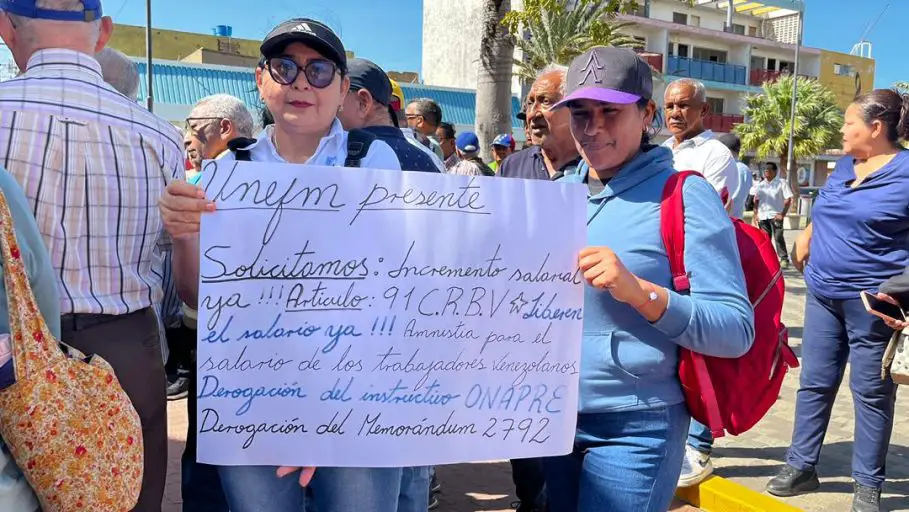 Unefm presente
Solicitamos: Incremento salarial
ya !!! Artículo: 91 C.R.B.V ☆ Liberen
el salario ya !!! Amnistía para el
salario de los trabajadores venezolanos
Derogación del instructivo ONAPRE
Derogación del Memorándum 2792